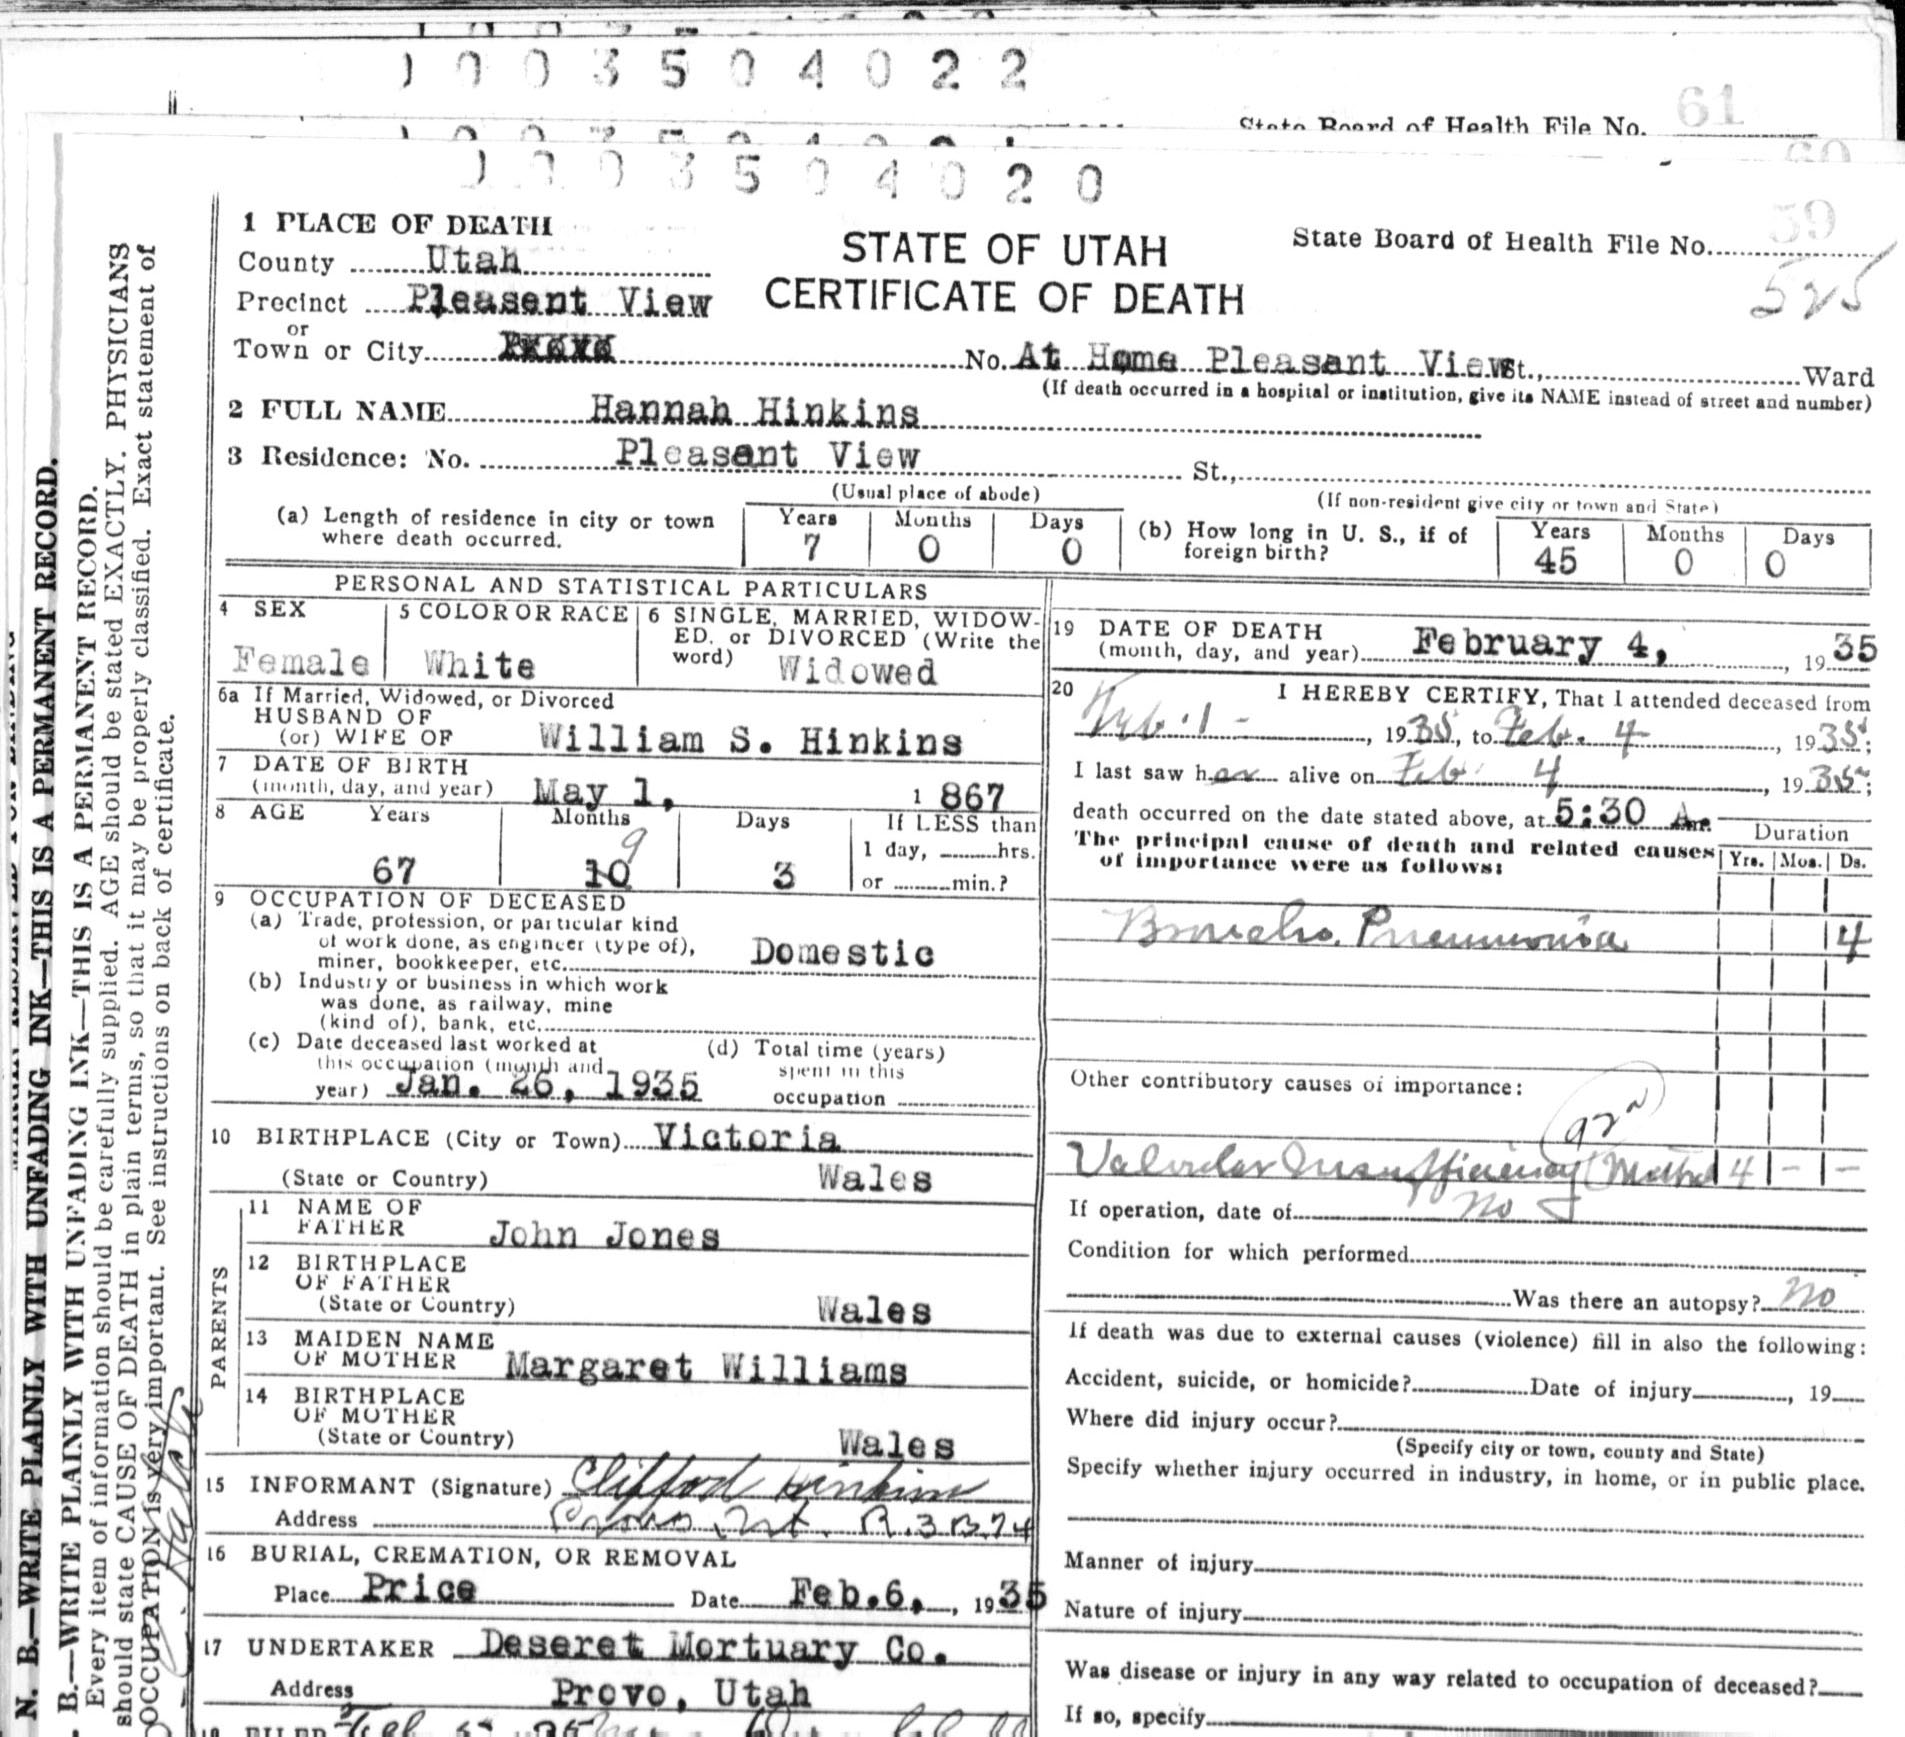 1 0 0 3 5 0 4 0 2 2
State Board of Health File No. 61
60
1 0 0 3 5 0 4 0 2 0
59
525
1 PLACE OF DEATH
STATE OF UTAH
CERTIFICATE OF DEATH
State Board of Health File No.
County Utah
Precinct Pleasent View
or
Town or City Provo No. At Home Pleasant View St., Ward
(If death occurred in a hospital or institution, give its NAME instead of street and number)
2 FULL NAME Hannah Hinkins
3 Residence: No. Pleasant View St.,
(Usual place of abode) (If non-resident give city or town and State)
(a) Length of residence in city or town where death occurred. Years 7 Months 0 Days 0
(b) How long in U. S., if of foreign birth? Years 45 Months 0 Days 0
PERSONAL AND STATISTICAL PARTICULARS
4 SEX
Female
5 COLOR OR RACE
White
6 SINGLE, MARRIED, WIDOW-
ED, or DIVORCED (Write the
word) Widowed
6a If Married, Widowed, or Divorced
HUSBAND OF
(or) WIFE OF William S. Hinkins
7 DATE OF BIRTH
(month, day, and year) May 1, 1 867
8 AGE Years Months Days If LESS than
1 day, hrs.
or min.?
67 10 9 3
9 OCCUPATION OF DECEASED
(a) Trade, profession, or particular kind
of work done, as engineer (type of),
miner, bookkeeper, etc. Domestic
(b) Industry or business in which work
was done, as railway, mine
(kind of), bank, etc.
(c) Date deceased last worked at
this occupation (month and
year) Jan. 26, 1935
(d) Total time (years)
spent in this
occupation
10 BIRTHPLACE (City or Town) Victoria
(State or Country) Wales
PARENTS
11 NAME OF
FATHER John Jones
12 BIRTHPLACE
OF FATHER
(State or Country) Wales
13 MAIDEN NAME
OF MOTHER Margaret Williams
14 BIRTHPLACE
OF MOTHER
(State or Country) Wales
15 INFORMANT (Signature) Clifford Hinkins
Address Provo, Ut. R.3 B.74
16 BURIAL, CREMATION, OR REMOVAL
Place Price Date Feb.6, , 1935
17 UNDERTAKER Deseret Mortuary Co.
Address Provo, Utah
18 FILED Feb 5 35
19 DATE OF DEATH
(month, day, and year) February 4, , 1935
20 I HEREBY CERTIFY, That I attended deceased from
Feb. 1 - , 1935, to Feb. 4 , 1935;
I last saw her alive on Feb 4 , 1935;
death occurred on the date stated above, at 5:30 A.m.
The principal cause of death and related causes
of importance were as follows:
Duration
Yrs. Mos. Ds.
Broncho. Pneumonia 4
Other contributory causes of importance:
92a
Valvular Insufficiency (Mitral 4 - -
If operation, date of no
Condition for which performed
Was there an autopsy? no
If death was due to external causes (violence) fill in also the following:
Accident, suicide, or homicide? Date of injury , 19
Where did injury occur?
(Specify city or town, county and State)
Specify whether injury occurred in industry, in home, or in public place.
Manner of injury
Nature of injury
Was disease or injury in any way related to occupation of deceased?
If so, specify
N. B.—WRITE PLAINLY WITH UNFADING INK—THIS IS A PERMANENT RECORD.
. B.—WRITE PLAINLY WITH UNFADING INK—THIS IS A PERMANENT RECORD.
Every item of information should be carefully supplied. AGE should be stated EXACTLY. PHYSICIANS
should state CAUSE OF DEATH in plain terms, so that it may be properly classified. Exact statement of
OCCUPATION is very important. See instructions on back of certificate.